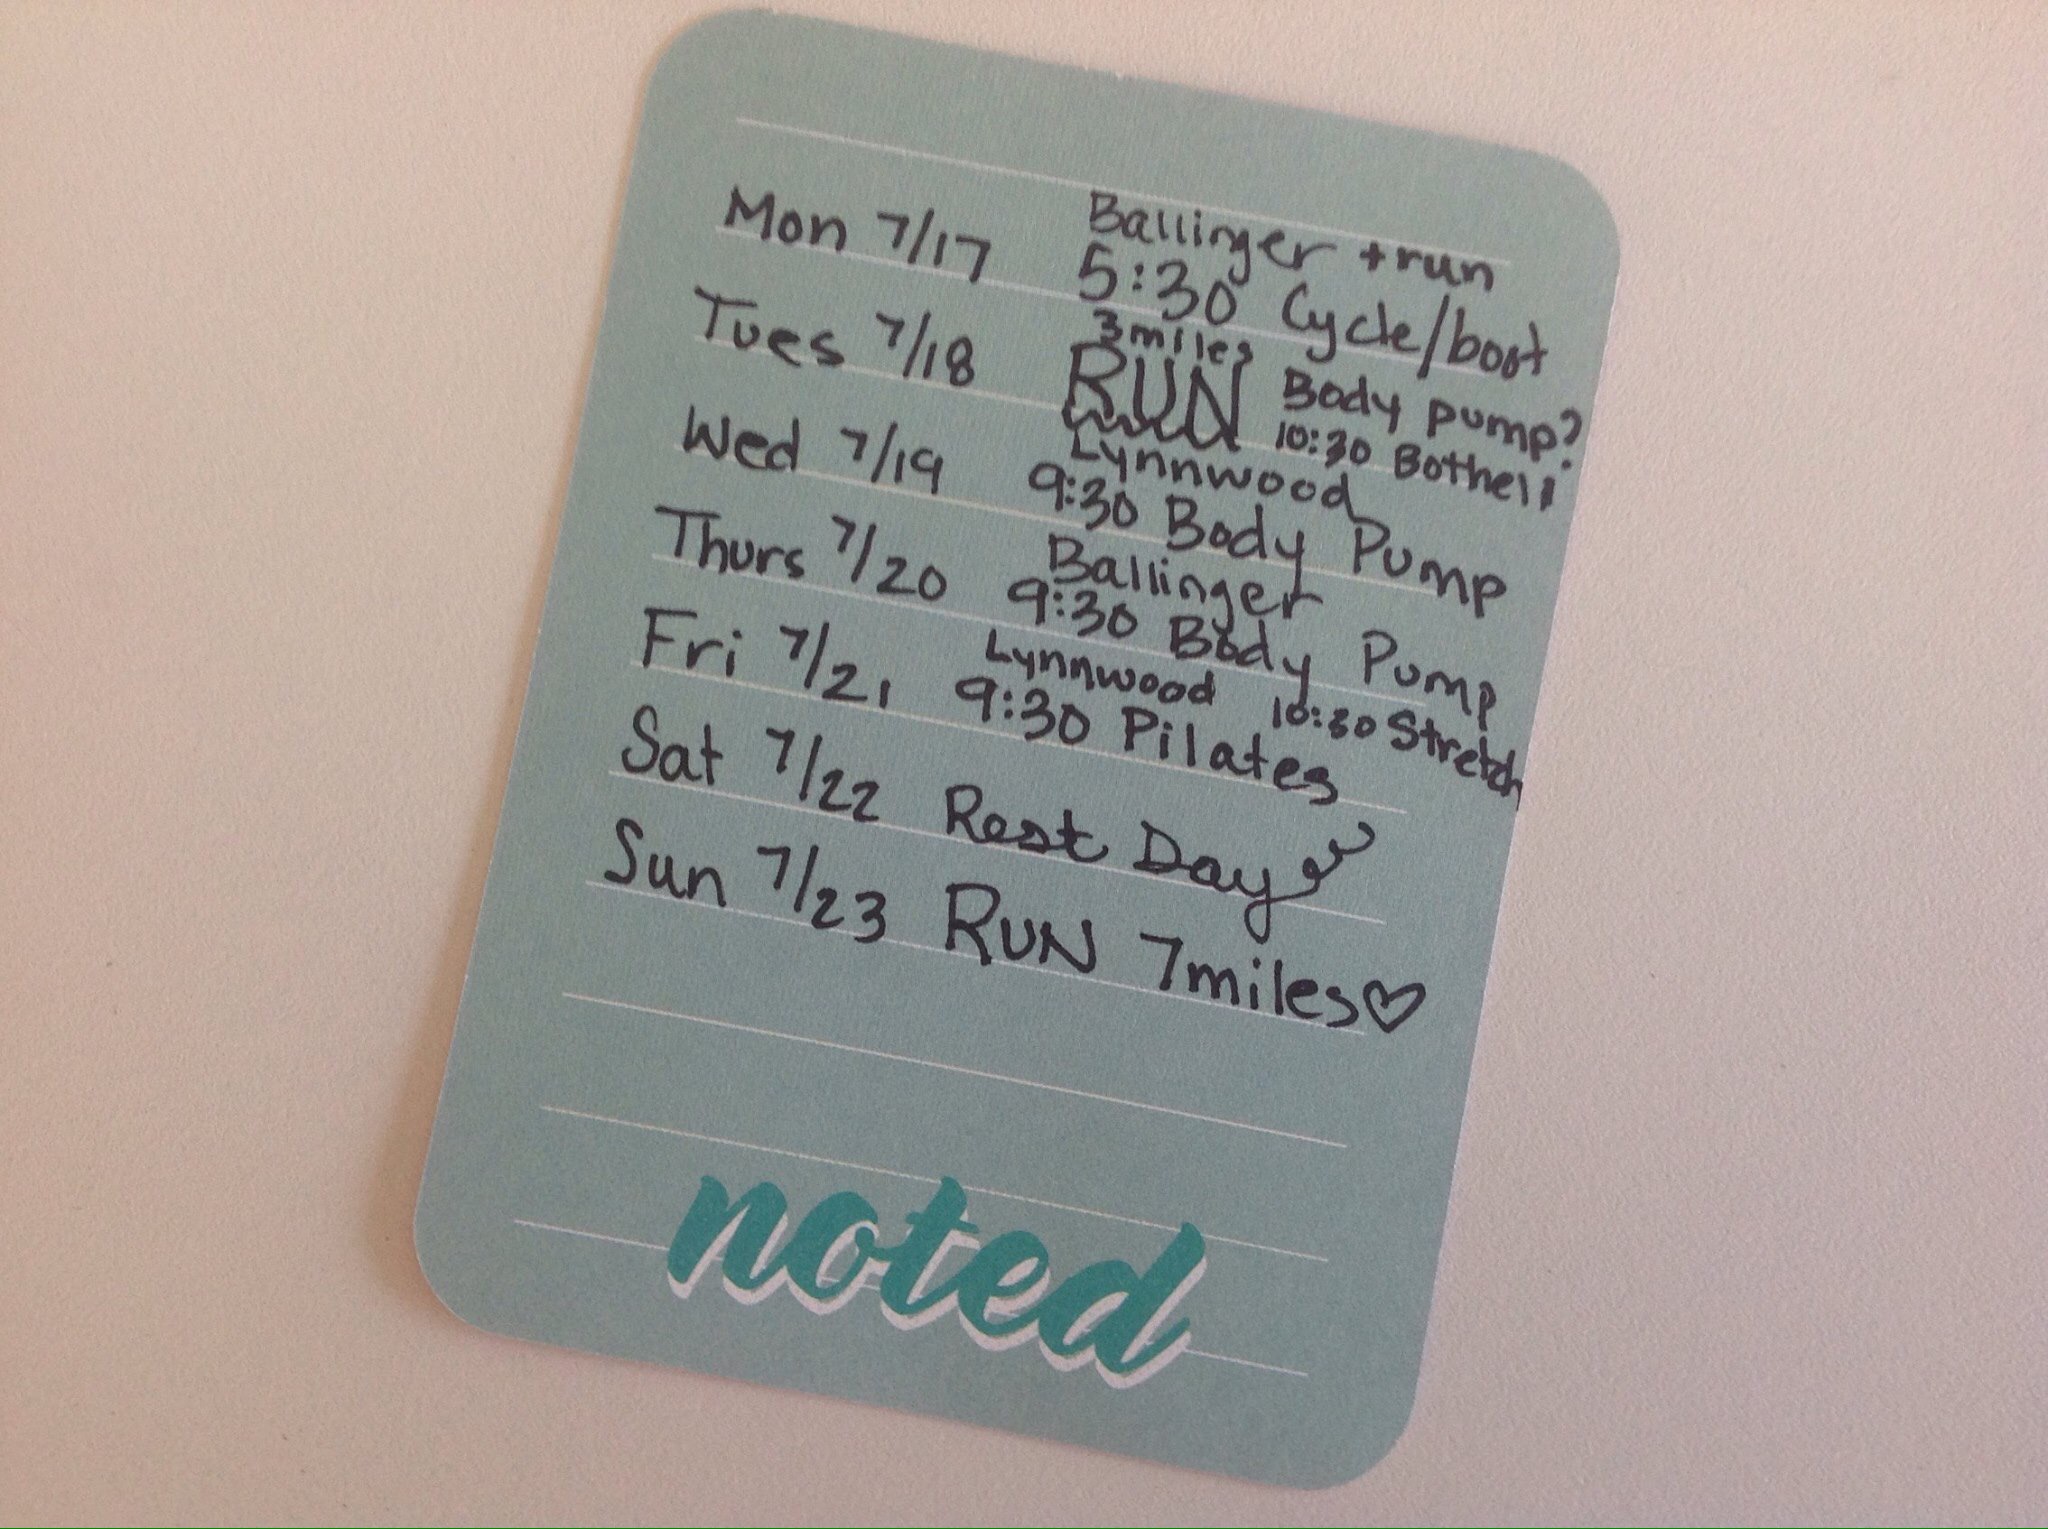 Ballinger + run
Mon 7/17 5:30 Cycle/boot
3 miles
Tues 7/18 RUN Body pump?
10:30 Bothell
Lynnwood
Wed 7/19 9:30 Body Pump
Ballinger
Thurs 7/20 9:30 Body Pump
Lynnwood 10:30 Stretch
Fri 7/21 9:30 Pilates
Sat 7/22 Rest Day
Sun 7/23 RUN 7miles♡
noted